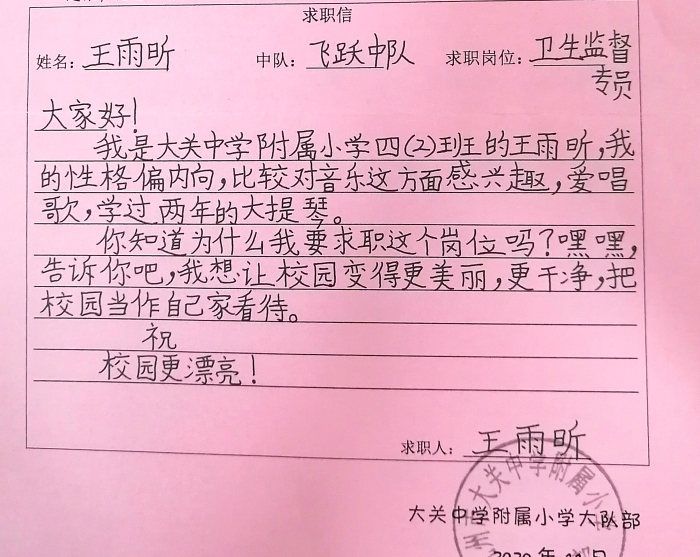 求职信
姓名：王雨昕 中队：飞跃中队 求职岗位：卫生监督
专员
大家好！
我是大关中学附属小学四(2)班的王雨昕，我
的性格偏内向，比较对音乐这方面感兴趣，爱唱
歌，学过两年的大提琴。
你知道为什么我要求职这个岗位吗？嘿嘿，
告诉你吧，我想让校园变得更美丽，更干净，把
校园当作自己家看待。
祝
校园更漂亮！
求职人：王雨昕
大关中学附属小学
大关中学附属小学大队部